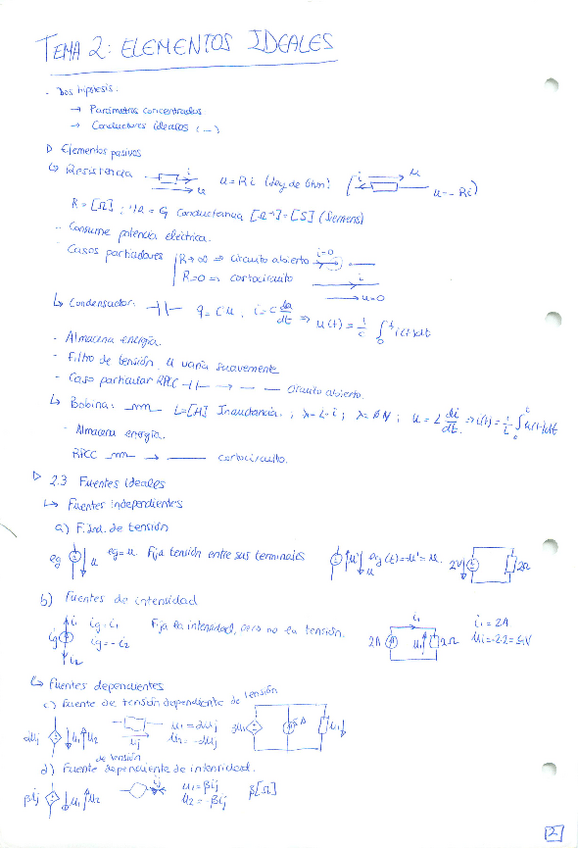 TEMA 2: ELEMENTOS IDEALES
- Dos hipótesis.
→ Parámetros concentrados
→ Conductores ideales (...)
▷ Elementos pasivos
↳ Resistencia i u u = Ri (Ley de Ohm) ( i u u = -Ri)
R = [Ω] ; 1/R = G Conductancia [Ω⁻¹] = [S] (Siemens)
- Consume potencia eléctrica.
Casos particulares R→∞ ⇒ circuito abierto i=0
R=0 ⇒ cortocircuito i u=0
↳ Condensador: q = Cu , i = C du/dt ⇒ u(t) = 1/C ∫₀ᵗ i(t)dt
- Almacena energía.
- Filtro de tensión u varía suavemente
- Caso particular RPCC → circuito abierto.
↳ Bobina: L=[H] Inductancia. ; λ = L·i ; λ = ΦN ; u = L di/dt ⇒ i(t) = 1/L ∫₀ᵗ u(t)dt
- Almacena energía.
RPCC → cortocircuito.
▷ 2.3 Fuentes ideales
↳ Fuentes independientes
a) F. ind. de tensión
eg u eg = u. Fija tensión entre sus terminales u' u eg(t) = u' = u. 2V 2Ω
b) Fuentes de intensidad
ig i₁ i₂ ig = i₁ ig = -i₂ Fija la intensidad, pero no la tensión. 2A i₁ u₁ 2Ω i₁ = 2A
↳ Fuentes dependientes
c) Fuente de tensión dependiente de tensión
αuj u₁ u₂ uj u₁ = αuj u₂ = -αuj 3u₁ 5A u₁
d) Fuente de tensión dependiente de intensidad.
βij u₁ u₂ ij u₁ = βij u₂ = -βij β[Ω]
2